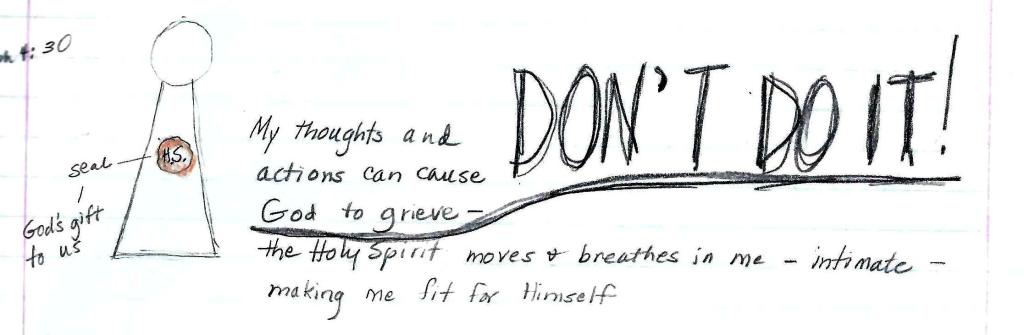 4:30
seal
H.S.
God's gift
to us
My thoughts and
actions can cause
God to grieve –
the Holy Spirit moves & breathes in me – intimate –
making me fit for Himself
DON'T DO IT!